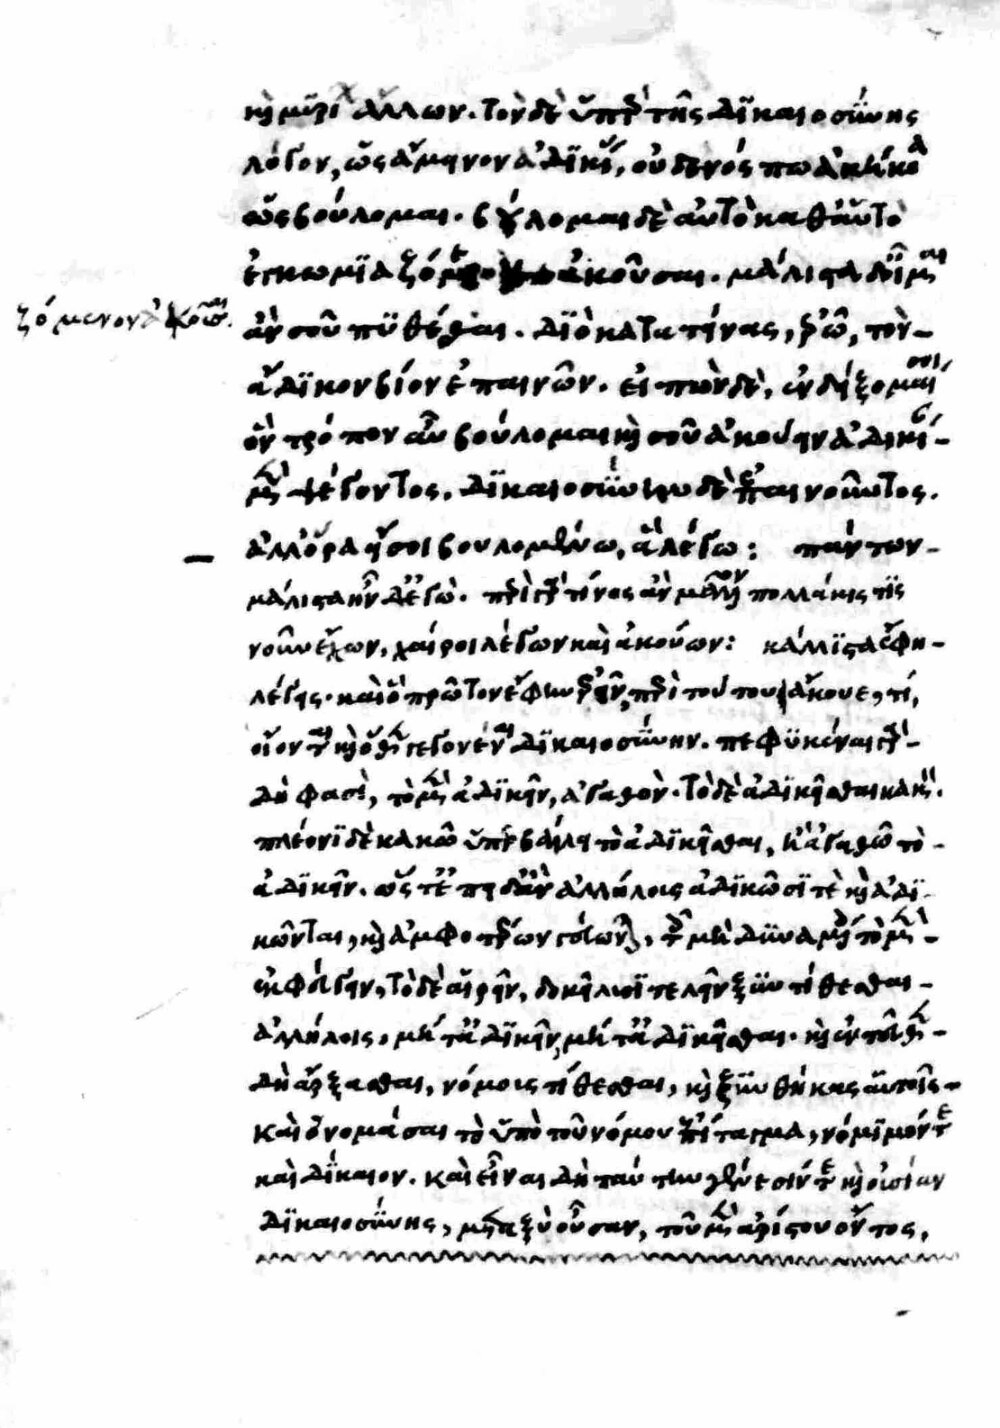 καὶ μυρίων ἄλλων. τὸν δὲ ὑπὲρ τῆς δικαιοσύνης
λόγον, ὡς ἄμεινον ἀδικίας, οὐδενός πω ἀκήκοα
ὡς βούλομαι. βούλομαι δὲ αὐτὸ καθ' αὑτὸ
ἐγκωμιαζόμενον ἀκοῦσαι. μάλιστα δ' οἶμαι
ζόμενον ἀκοῦσαι.
ἂν σοῦ πυθέσθαι. διὸ κατατείνας, ἐρῶ, τὸν
ἄδικον βίον ἐπαινῶν. εἰπὼν δὲ, ἐνδείξομαί σοι,
ὃν τρόπον αὖ βούλομαι καὶ σοῦ ἀκούειν ἀδικί-
αν μὲν ψέγοντος, δικαιοσύνην δὲ ἐπαινοῦντος.
ἀλλ' ὅρα εἴ σοι βουλομένῳ, ἃ λέγω: πάντων
μάλιστα ἦν δ' ἐγώ. περὶ γὰρ τίνος ἂν μᾶλλον πολλάκις τὶς
νοῦν ἔχων, χαίροι λέγων καὶ ἀκούων: κάλλιστα ἔφη
λέγεις. καὶ ὃ πρῶτον ἔφην ἐρεῖν, περὶ τούτου ἄκουε, τί,
οἷόν τε καὶ ὅθεν γέγονε δικαιοσύνην. πεφυκέναι γὰρ
δή φασι, τὸ μὲν ἀδικεῖν, ἀγαθὸν. τὸ δὲ ἀδικεῖσθαι κακόν.
πλέονι δὲ κακῷ ὑπερβάλλειν τὸ ἀδικεῖσθαι, ἢ ἀγαθῷ τὸ
ἀδικεῖν. ὥστ' ἐπειδὰν ἀλλήλους ἀδικῶσί τε καὶ ἀδι-
κῶνται, καὶ ἀμφοτέρων γεύωνται, τοῖς μὴ δυναμένοις τὸ μὲν
ἐκφεύγειν, τὸ δὲ αἱρεῖν, δοκεῖ λυσιτελεῖν ξυνθέσθαι
ἀλλήλοις, μήτ' ἀδικεῖν, μήτ' ἀδικεῖσθαι. καὶ ἐντεῦθεν
δὴ ἄρξασθαι, νόμους τίθεσθαι, καὶ ξυνθήκας αὑτῶν
καὶ ὀνομάσαι τὸ ὑπὸ τοῦ νόμου ἐπίταγμα, νόμιμόν τε
καὶ δίκαιον. καὶ εἶναι δὴ ταύτην γένεσίν τε καὶ οὐσίαν
δικαιοσύνης, μεταξὺ οὖσαν, τοῦ μὲν ἀρίστου ὄντος,